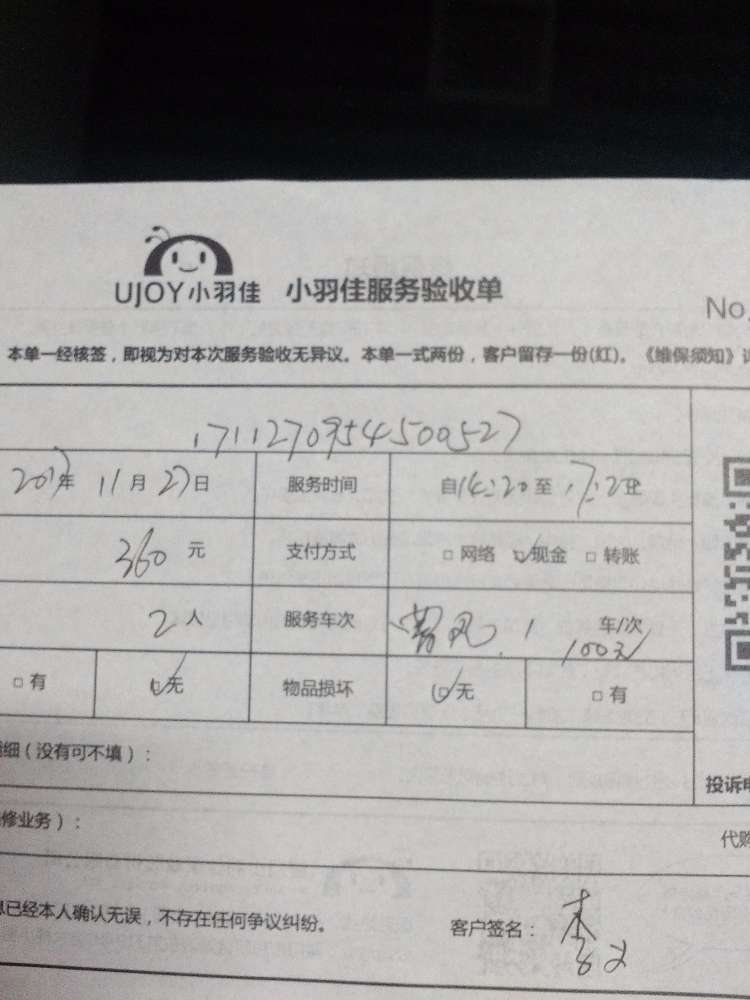 UJOY小羽佳 小羽佳服务验收单
No.
本单一经核签，即视为对本次服务验收无异议。本单一式两份，客户留存一份(红)。《维保须知》
1711270954500527
2017年 11月27日 服务时间 自14:20至17:2
360 元 支付方式 □ 网络 ☑现金 □ 转账
2人 服务车次 1 车/次
100元
□ 有 ☑无 物品损坏 ☑无 □ 有
细（没有可不填）：
投诉电
修业务）：
代购
息已经本人确认无误，不存在任何争议纠纷。 客户签名： 李